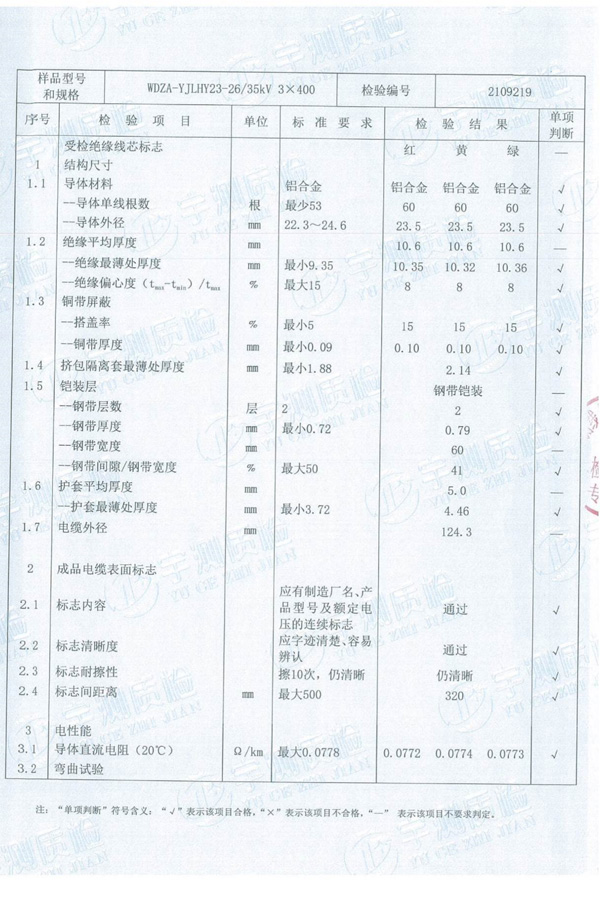 样品型号和规格 WDZA-YJLHY23-26/35kV 3×400 检验编号 2109219
序号 检 验 项 目 单位 标 准 要 求 检 验 结 果 单项判断
受检绝缘线芯标志 红 黄 绿 —
1 结构尺寸
1.1 导体材料 铝合金 铝合金 铝合金 铝合金 √
--导体单线根数 根 最少53 60 60 60 √
--导体外径 mm 22.3～24.6 23.5 23.5 23.5 √
1.2 绝缘平均厚度 mm 10.6 10.6 10.6 —
--绝缘最薄处厚度 mm 最小9.35 10.35 10.32 10.36 √
--绝缘偏心度（tmax-tmin）/tmax % 最大15 8 8 8 √
1.3 铜带屏蔽
--搭盖率 % 最小5 15 15 15 √
--铜带厚度 mm 最小0.09 0.10 0.10 0.10 √
1.4 挤包隔离套最薄处厚度 mm 最小1.88 2.14 √
1.5 铠装层 钢带铠装 —
--钢带层数 层 2 2 √
--钢带厚度 mm 最小0.72 0.79 √
--钢带宽度 mm 60 —
--钢带间隙/钢带宽度 % 最大50 41 √
1.6 护套平均厚度 mm 5.0 —
--护套最薄处厚度 mm 最小3.72 4.46 √
1.7 电缆外径 mm 124.3 —
2 成品电缆表面标志
2.1 标志内容 应有制造厂名、产
品型号及额定电
压的连续标志 通过 √
2.2 标志清晰度 应字迹清楚、容易
辨认 通过 √
2.3 标志耐擦性 擦10次，仍清晰 仍清晰 √
2.4 标志间距离 mm 最大500 320 √
3 电性能
3.1 导体直流电阻（20℃） Ω/km 最大0.0778 0.0772 0.0774 0.0773 √
3.2 弯曲试验
注：“单项判断”符号含义：“√”表示该项目合格，“×”表示该项目不合格，“—” 表示该项目不要求判定。